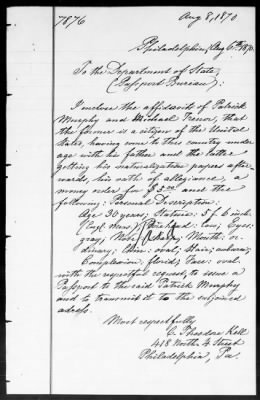 7876
Aug 8, 1870
Philadelphia, Aug 6th 1870
To the Department of State,
(Passport Bureau):
I inclose the affidavit of Patrick
Murphy and Michael Trenor, that
the former is a citizen of the United
States, having come to this country under
age with his father and the latter
getting his naturalization papers after-
wards his oath of allegiance, a
money order for $5.00 and the
following: Personal Description:
Age 30 years; Stature: 5 f. 6 inch
Forehead: low; Eyes:
gray; Nose: sharp; Mouth: or-
dinary; Chin: oval; Hair; auburn;
Complexion: florid; Face: oval
with the respectful request, to issue a
Passport to the said Patrick Murphy
and to transmit to the subjoined
adress.
Most respectfully
C. Theodore Kell
418 North 4 Street
Philadelphia, Pa.